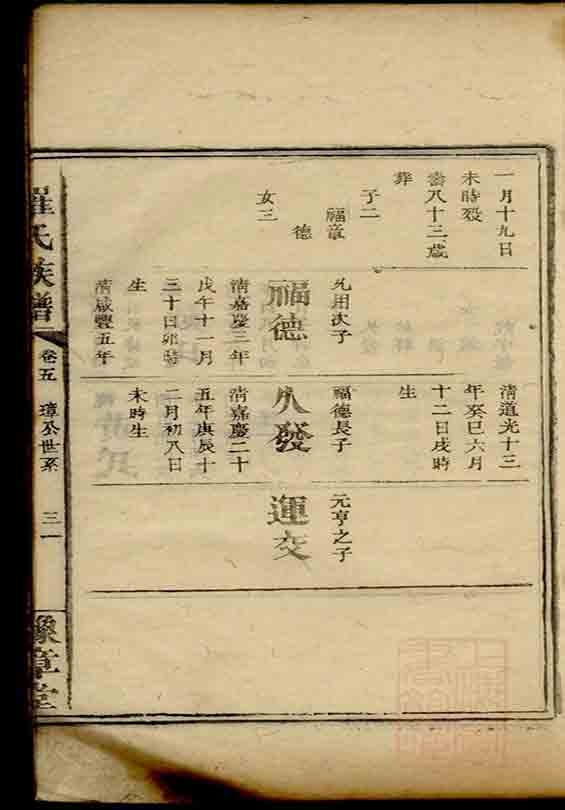 一月十九日
未時歿
壽八十三歲
葬
子二
福章
德
女三
允用次子
福德
清嘉慶三年
戊午十一月
三十日卯時
生
清咸豐五年
清道光十三
年癸巳六月
十二日戌時
生
福德長子
久發
清嘉慶二十
五年庚辰十
二月初八日
未時生
元亨之子
運交
羅氏族譜
卷五
璋公世系
三一
豫章堂